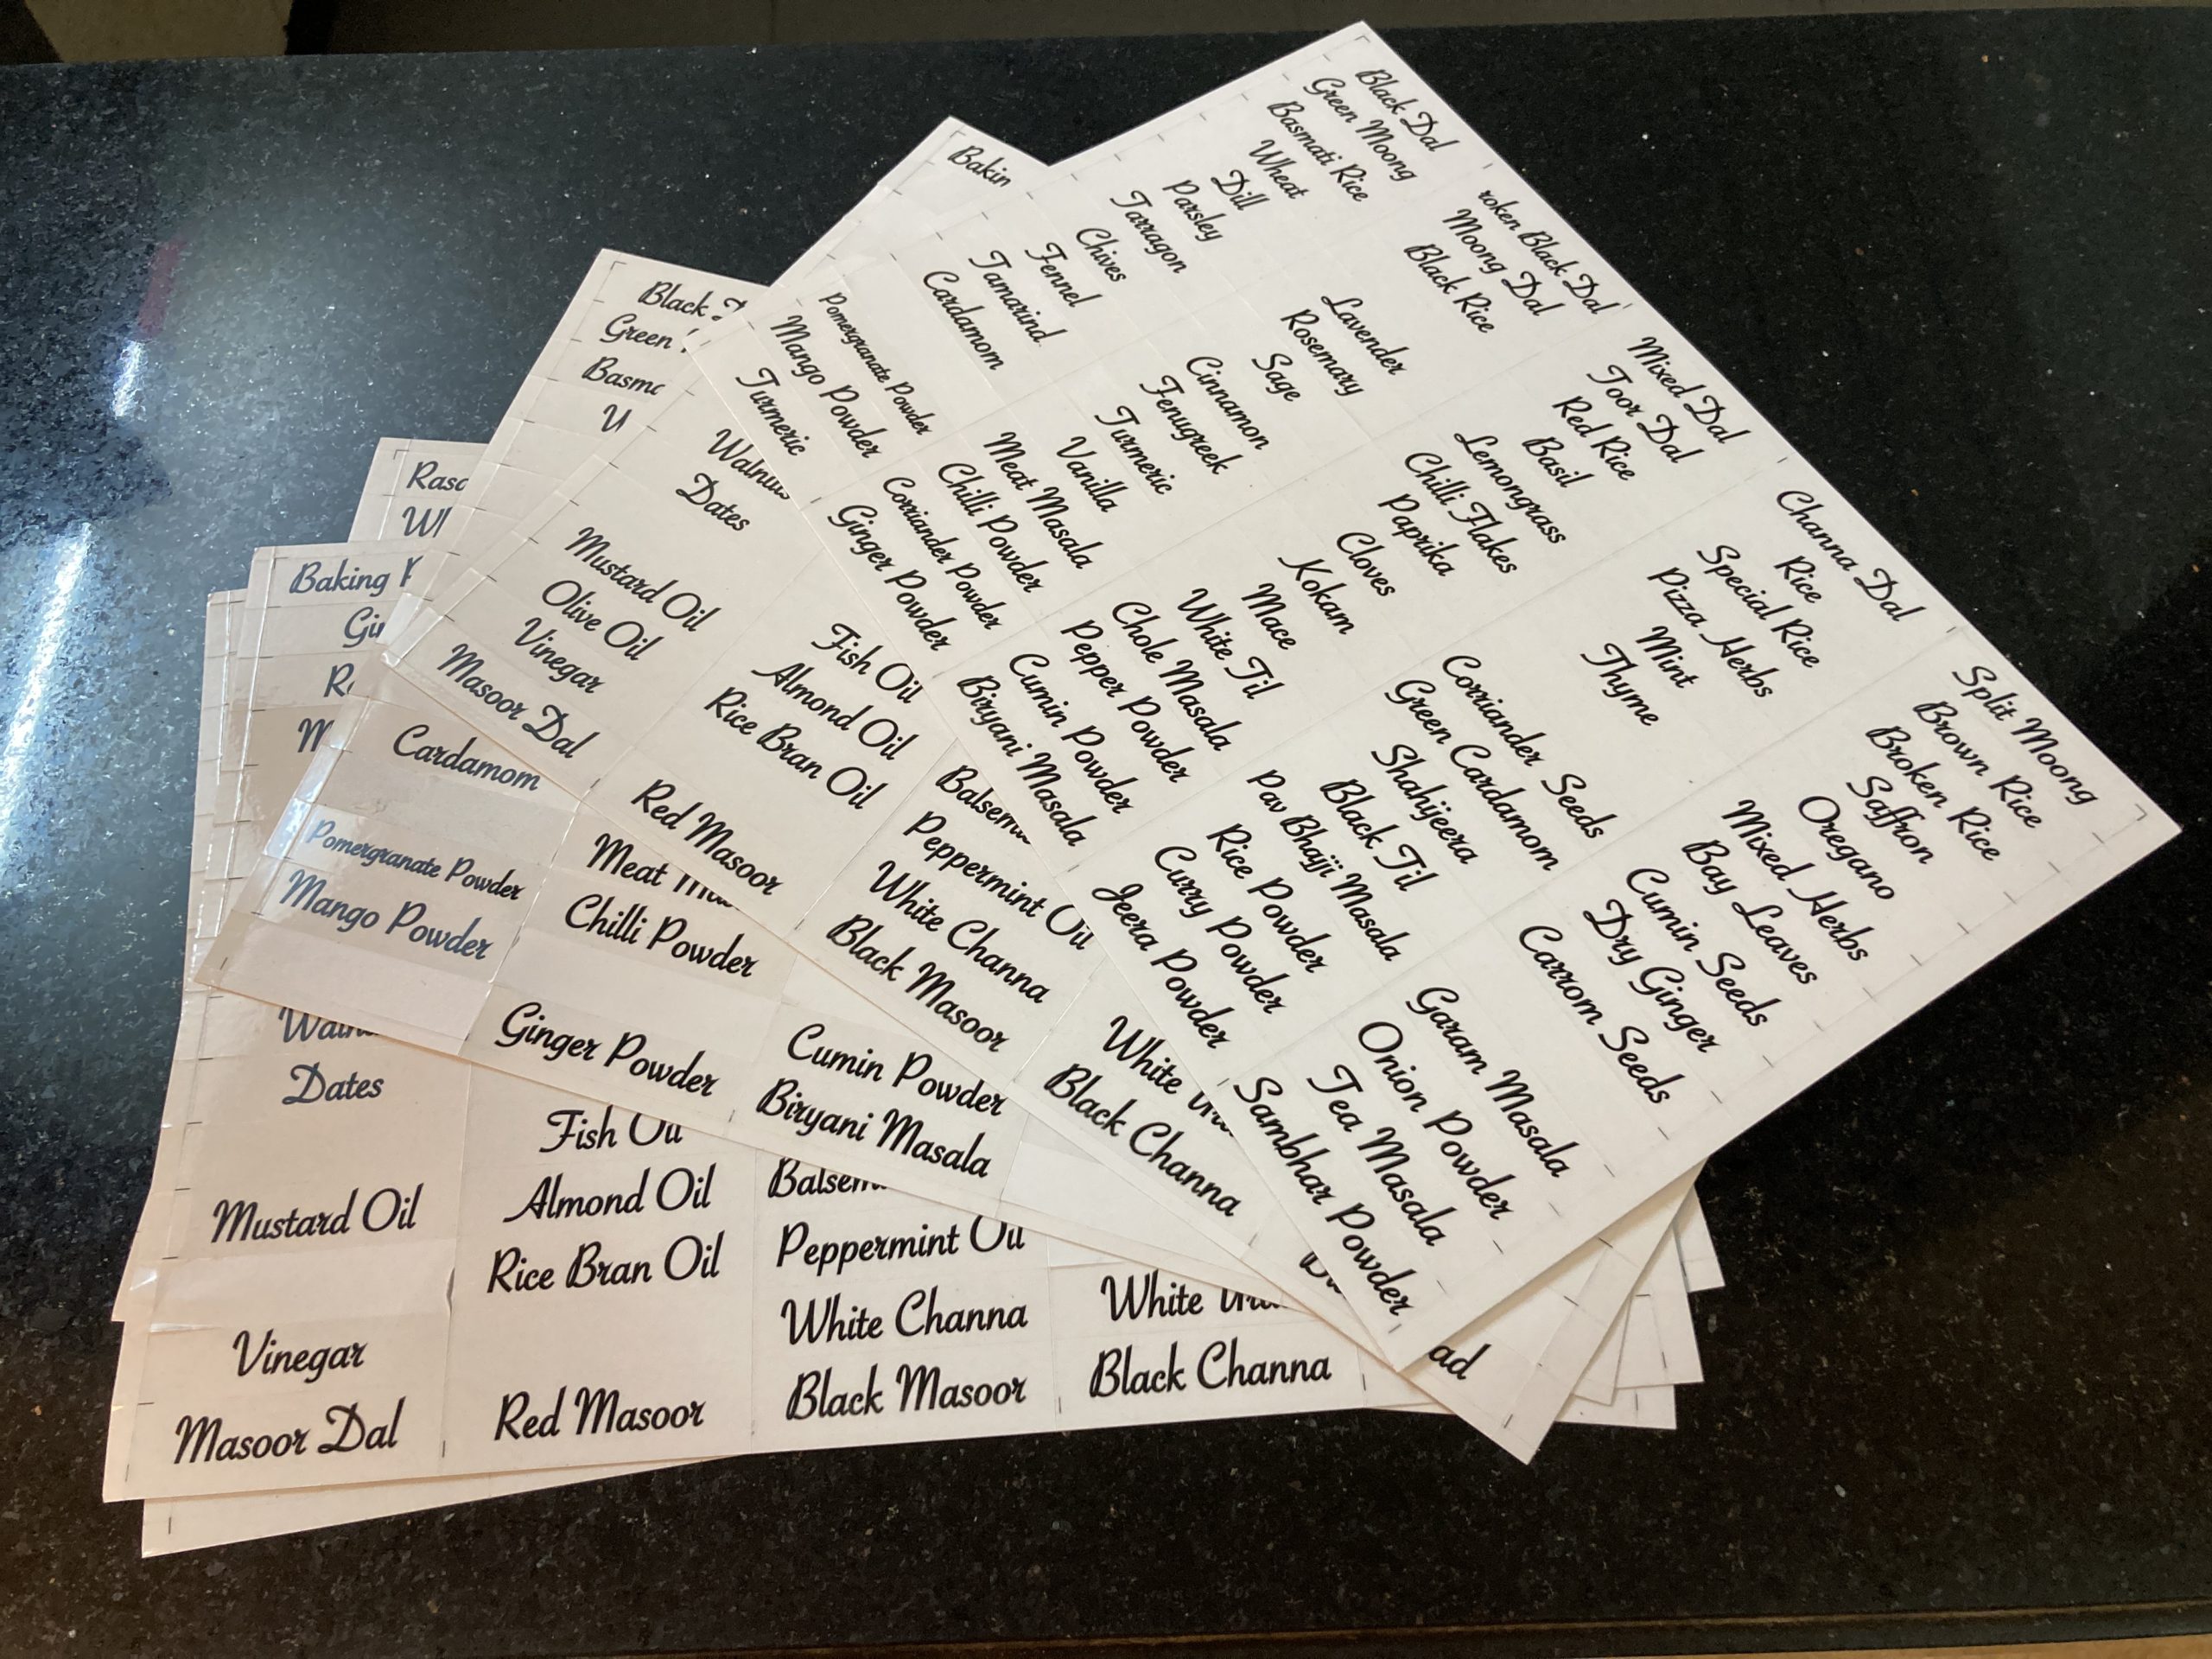 Black Dal
Green Moong
Basmati Rice
Wheat
Dill
Parsley
Tarragon
Chives
Fennel
Tamarind
Cardamom
Pomergranate Powder
Mango Powder
Turmeric
roken Black Dal
Moong Dal
Black Rice
Lavender
Rosemary
Sage
Cinnamon
Fenugreek
Turmeric
Vanilla
Meat Masala
Chilli Powder
Corriander Powder
Ginger Powder
Mixed Dal
Toor Dal
Red Rice
Basil
Lemongrass
Chilli Flakes
Paprika
Cloves
Kokam
Mace
White Til
Chole Masala
Pepper Powder
Cumin Powder
Biryani Masala
Channa Dal
Rice
Special Rice
Pizza Herbs
Mint
Thyme
Corriander Seeds
Green Cardamom
Shahijeera
Black Til
Pav Bhajji Masala
Rice Powder
Curry Powder
Jeera Powder
Split Moong
Brown Rice
Broken Rice
Saffron
Oregano
Mixed Herbs
Bay Leaves
Cumin Seeds
Dry Ginger
Carrom Seeds
Garam Masala
Onion Powder
Tea Masala
Sambhar Powder
Bakin
Walnu
Dates
Mustard Oil
Olive Oil
Vinegar
Masoor Dal
Fish Oil
Almond Oil
Rice Bran Oil
Red Masoor
Balsem
Peppermint Oil
White Channa
Black Masoor
White
Black Channa
Black
Green
Basm
Cardamom
Pomergranate Powder
Mango Powder
Meat
Chilli Powder
Ginger Powder
Cumin Powder
Biryani Masala
Ras
Baking
Dates
Mustard Oil
Vinegar
Masoor Dal
Fish Oil
Almond Oil
Rice Bran Oil
Red Masoor
Balsem
Peppermint Oil
White Channa
Black Masoor
White
Black Channa
ad